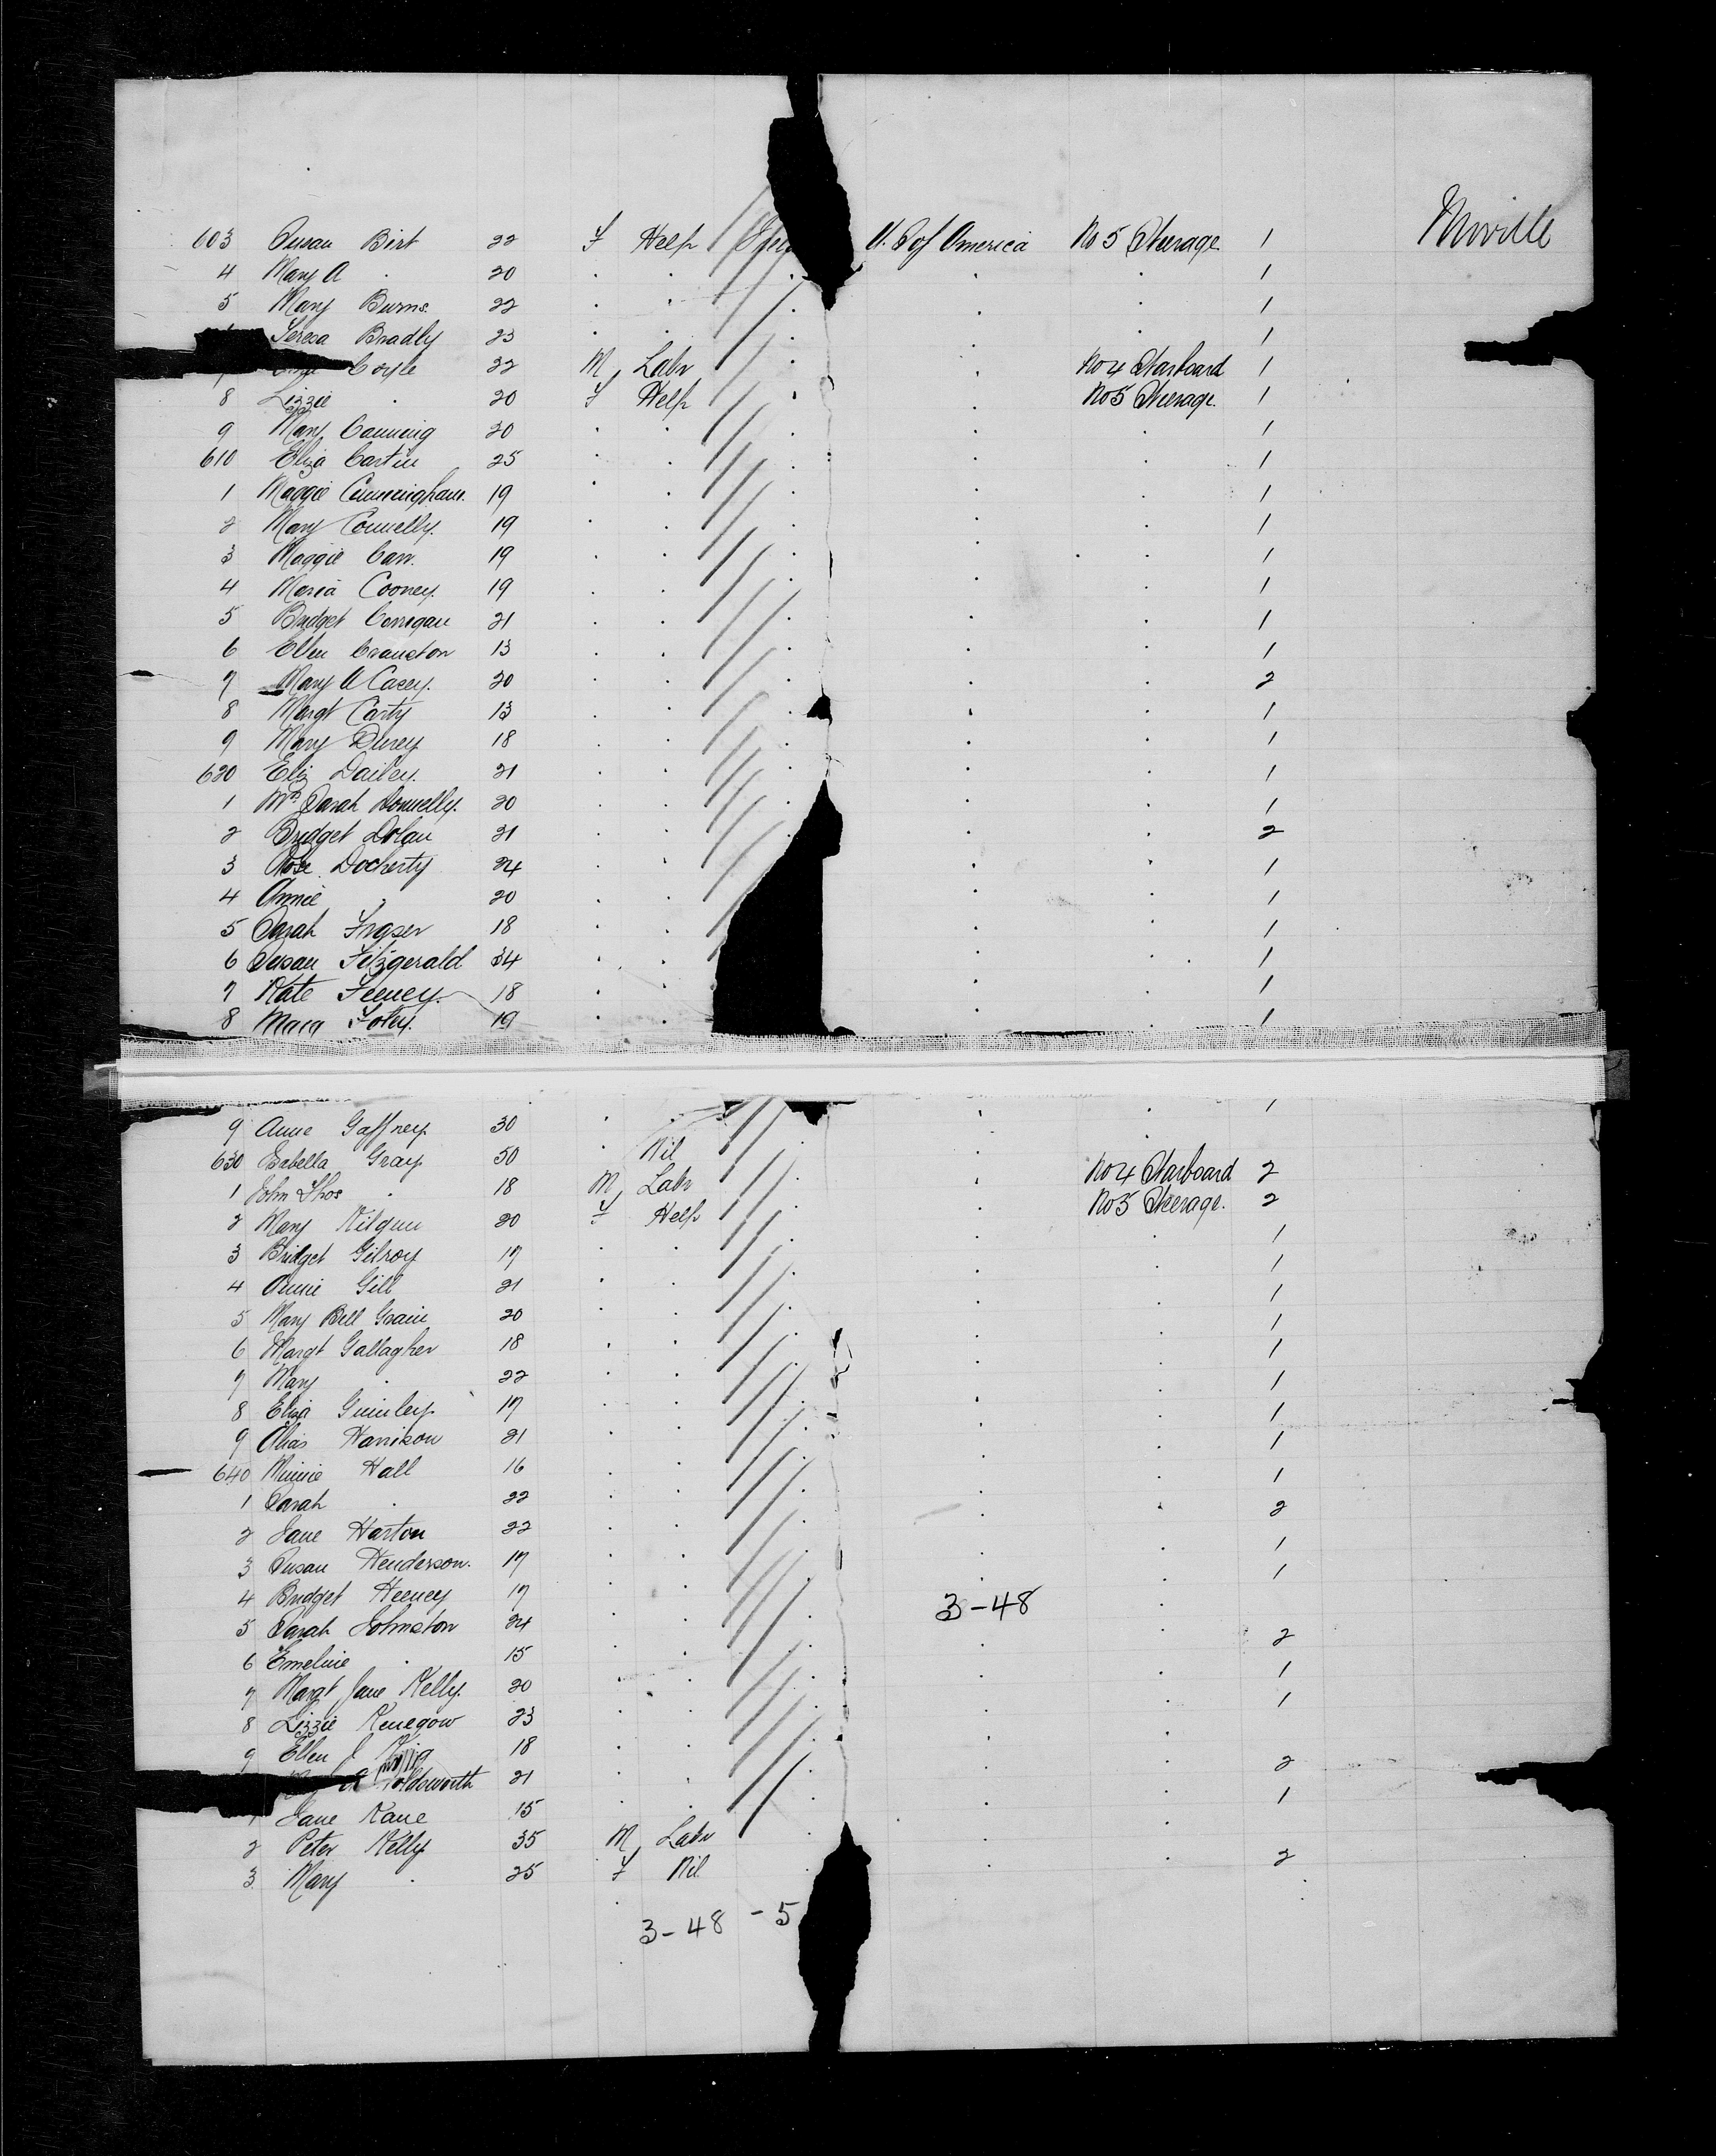 603 Susan Birt 22 F Help U. S of America No 5 Steerage 1 Moville
4 Mary A . 20 . . . . 1
5 Mary Burns. 22 . . . . 1
Teresa Bradly 23 . . . . 1
Coyle 22 M Labr . . No 4 Starboard 1
8 Lizzie . 20 F Help . . No 5 Steerage. 1
9 Mary Canning 20 . . . . 1
610 Eliza Cartin 25 . . . . 1
1 Maggie Cunningham. 19 . . . . 1
2 Mary Connelly. 19 . . . . 1
3 Maggie Carr. 19 . . . . 1
4 Maria Cooney. 19 . . . . 1
5 Bridget Corrigan 21 . . . . 1
6 Ellen Cranston 13 . . . . 1
7 Mary A Casey. 20 . . . . 2
8 Margt Carty 13 . . . . 1
9 Mary Durey 18 . . . . 1
620 Eliz Dailey. 21 . . . . 1
1 Mrs Sarah Donnelly. 20 . . . . 1
2 Bridget Dolan 21 . . . . 2
3 Rose Docherty 24 . . . . 1
4 Annie " 20 . . . . 1
5 Sarah Fraser 18 . . . . 1
6 Susan Fitzgerald 34 . . . . 1
7 Kate Feeney. 18 . . . . 1
8 Mary Foley. 19 . . . . 1
9 Anne Gaffney 30 . . . . 1
630 Isabella Gray 50 . Nil . .
1 John Thos . 18 M Labr . No 4 Starboard 2
2 Mary Kilgun 20 F Help . No 5 Steerage. 2
3 Bridget Gilroy 17 . . . . 1
4 Annie Gill 21 . . . . 1
5 Mary Bell Grain 20 . . . . 1
6 Margt Gallagher 18 . . . . 1
7 Mary . 22 . . . . 1
8 Eliza Gumley 17 . . . . 1
9 Harrison 21 . . . . 1
640 Minnie Hall 16 . . . . 1
1 Sarah . 22 . . . . 1
2 Jane Harton 22 . . . . 2
3 Susan Henderson. 17 . . . . 1
4 Bridget Heeney 17 . . . . 1
3-48
5 Sarah Johnston 24 . . . .
6 Emeline . 15 . . . . 2
7 Margt Jane Kelly. 20 . . . . 1
8 Lizzie Kenegow 23 . . . . 1
9 Ellen J 18 . . . .
Holdsworth 21 . . . . 2
1 Jane Kane 15 . . . . 1
2 Peter Kelly 35 M Labr . . .
3 Mary . 25 F Nil . . . 2
3-48 -5